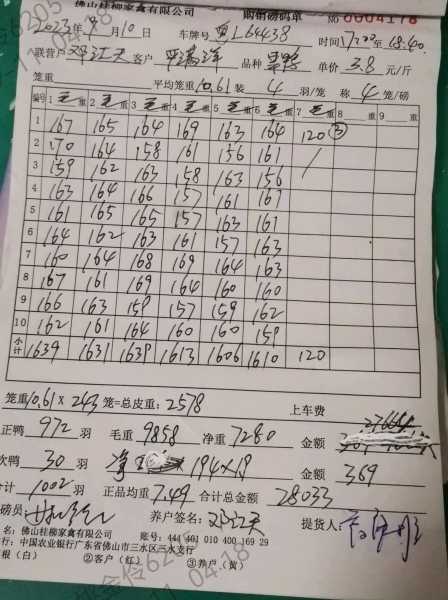 佛山桂柳家禽有限公司 购销磅码单 № 0004178
2023年9月10日 车牌号 粤L64438 时间 17:20至18:40
联营户 邓江天 客户 品种 单价 3.8 元/斤
笼重 平均笼重10.61 装 4 羽/笼 称 4 笼/磅
编号 1 毛重 2 毛重 3 毛重 4 毛重 5 毛重 6 毛重 7 毛重 8 重 9 重
1 167 165 164 169 163 164 120 ③
2 170 164 158 161 156 161
3 159 162 163 158 163 156
4 163 164 166 157 161 167
5 161 165 165 157 163 161
6 164 162 163 161 157 163
7 160 164 168 169 164 163
8 167 161 169 164 160 160
9 166 163 159 157 159 162
10 162 161 164 160 160 159
小计 1639 1631 1639 1613 1606 1610 120
笼重10.61×243笼=总皮重:2578 上车费
正鸭 972 羽 毛重 9858 净重 7280 金额 27664
次鸭 30 羽 净 194×19 金额 369
合计 1002 羽 正品均重 7.49 合计总金额 28033
磅员: 养户签名: 邓江天 提货人:
名:佛山桂柳家禽有限公司 账号:444 401 010 400 169 29
行:中国农业银行广东省佛山市三水区三水支行
根(白) ②客户(红) ③养户(黄)